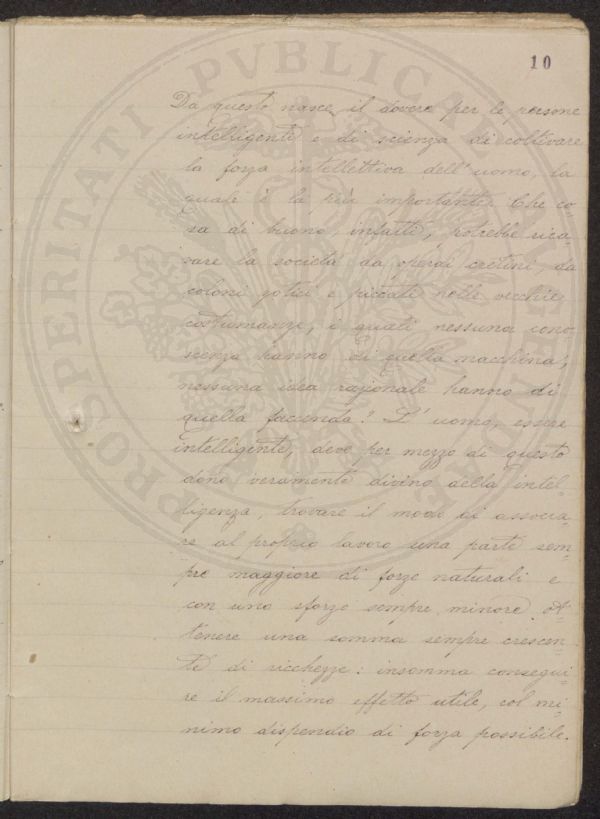 10
Da questo nasce il dovere per le persone
intelligenti e di scienza di coltivare
la forza intellettiva dell'uomo, la
quale è la più importante. Che co-
sa di buono, infatti, potrebbe rica-
vare la società da operai cretini, da
coloni zotici e piccati nelle vecchie
costumanze, i quali nessuna cono-
scenza hanno di quella macchina,
nessuna idea razionale hanno di
quella faccenda? L'uomo, essere
intelligente, deve per mezzo di questo
dono veramente divino della intel-
ligenza, trovare il modo di associa-
re al proprio lavoro una parte sem-
pre maggiore di forze naturali e
con uno sforzo sempre minore ot-
tenere una somma sempre crescen-
te di ricchezze: insomma consegui-
re il massimo effetto utile, col mi-
nimo dispendio di forza possibile.
PROSPERITATI PVBLICAE